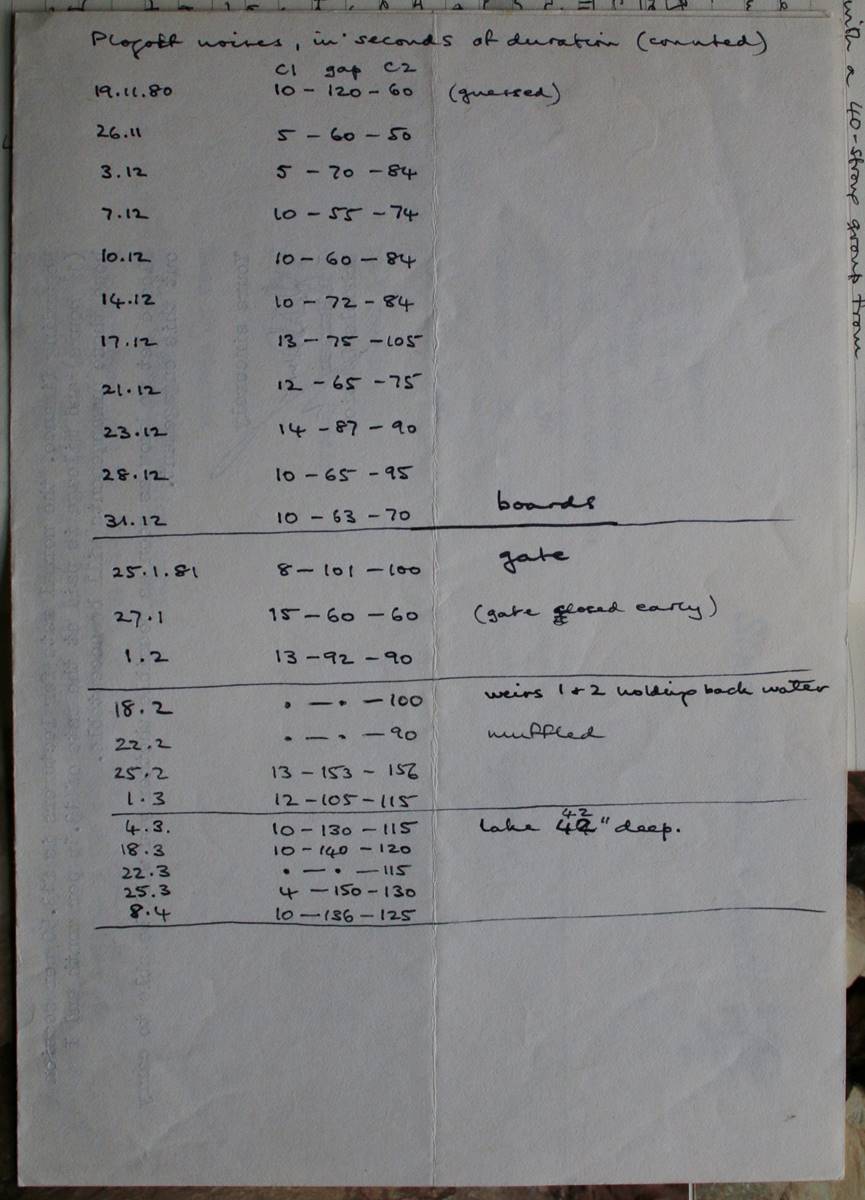 Plogoff noises, in seconds of duration (counted)
C1 gap C2
19.11.80 10 – 120 – 60 (guessed)
26.11 5 – 60 – 50
3.12 5 – 70 – 84
7.12 10 – 55 – 74
10.12 10 – 60 – 84
14.12 10 – 72 – 84
17.12 13 – 75 – 105
21.12 12 – 65 – 75
23.12 14 – 87 – 90
28.12 10 – 65 – 95
boards
31.12 10 – 63 – 70
gate
25.1.81 8 – 101 – 100
27.1 15 – 60 – 60 (gate closed early)
1.2 13 – 92 – 90
18.2 • – • – 100 weirs 1 + 2 holding back water
22.2 • – • – 90 muffled
25.2 13 – 153 – 156
1.3 12 – 105 – 115
4.3. 10 – 130 – 115 lake 42" deep.
18.3 10 – 140 – 120
22.3 • – • – 115
25.3 4 – 150 – 130
8.4 10 – 136 – 125
with a 40-strong group from